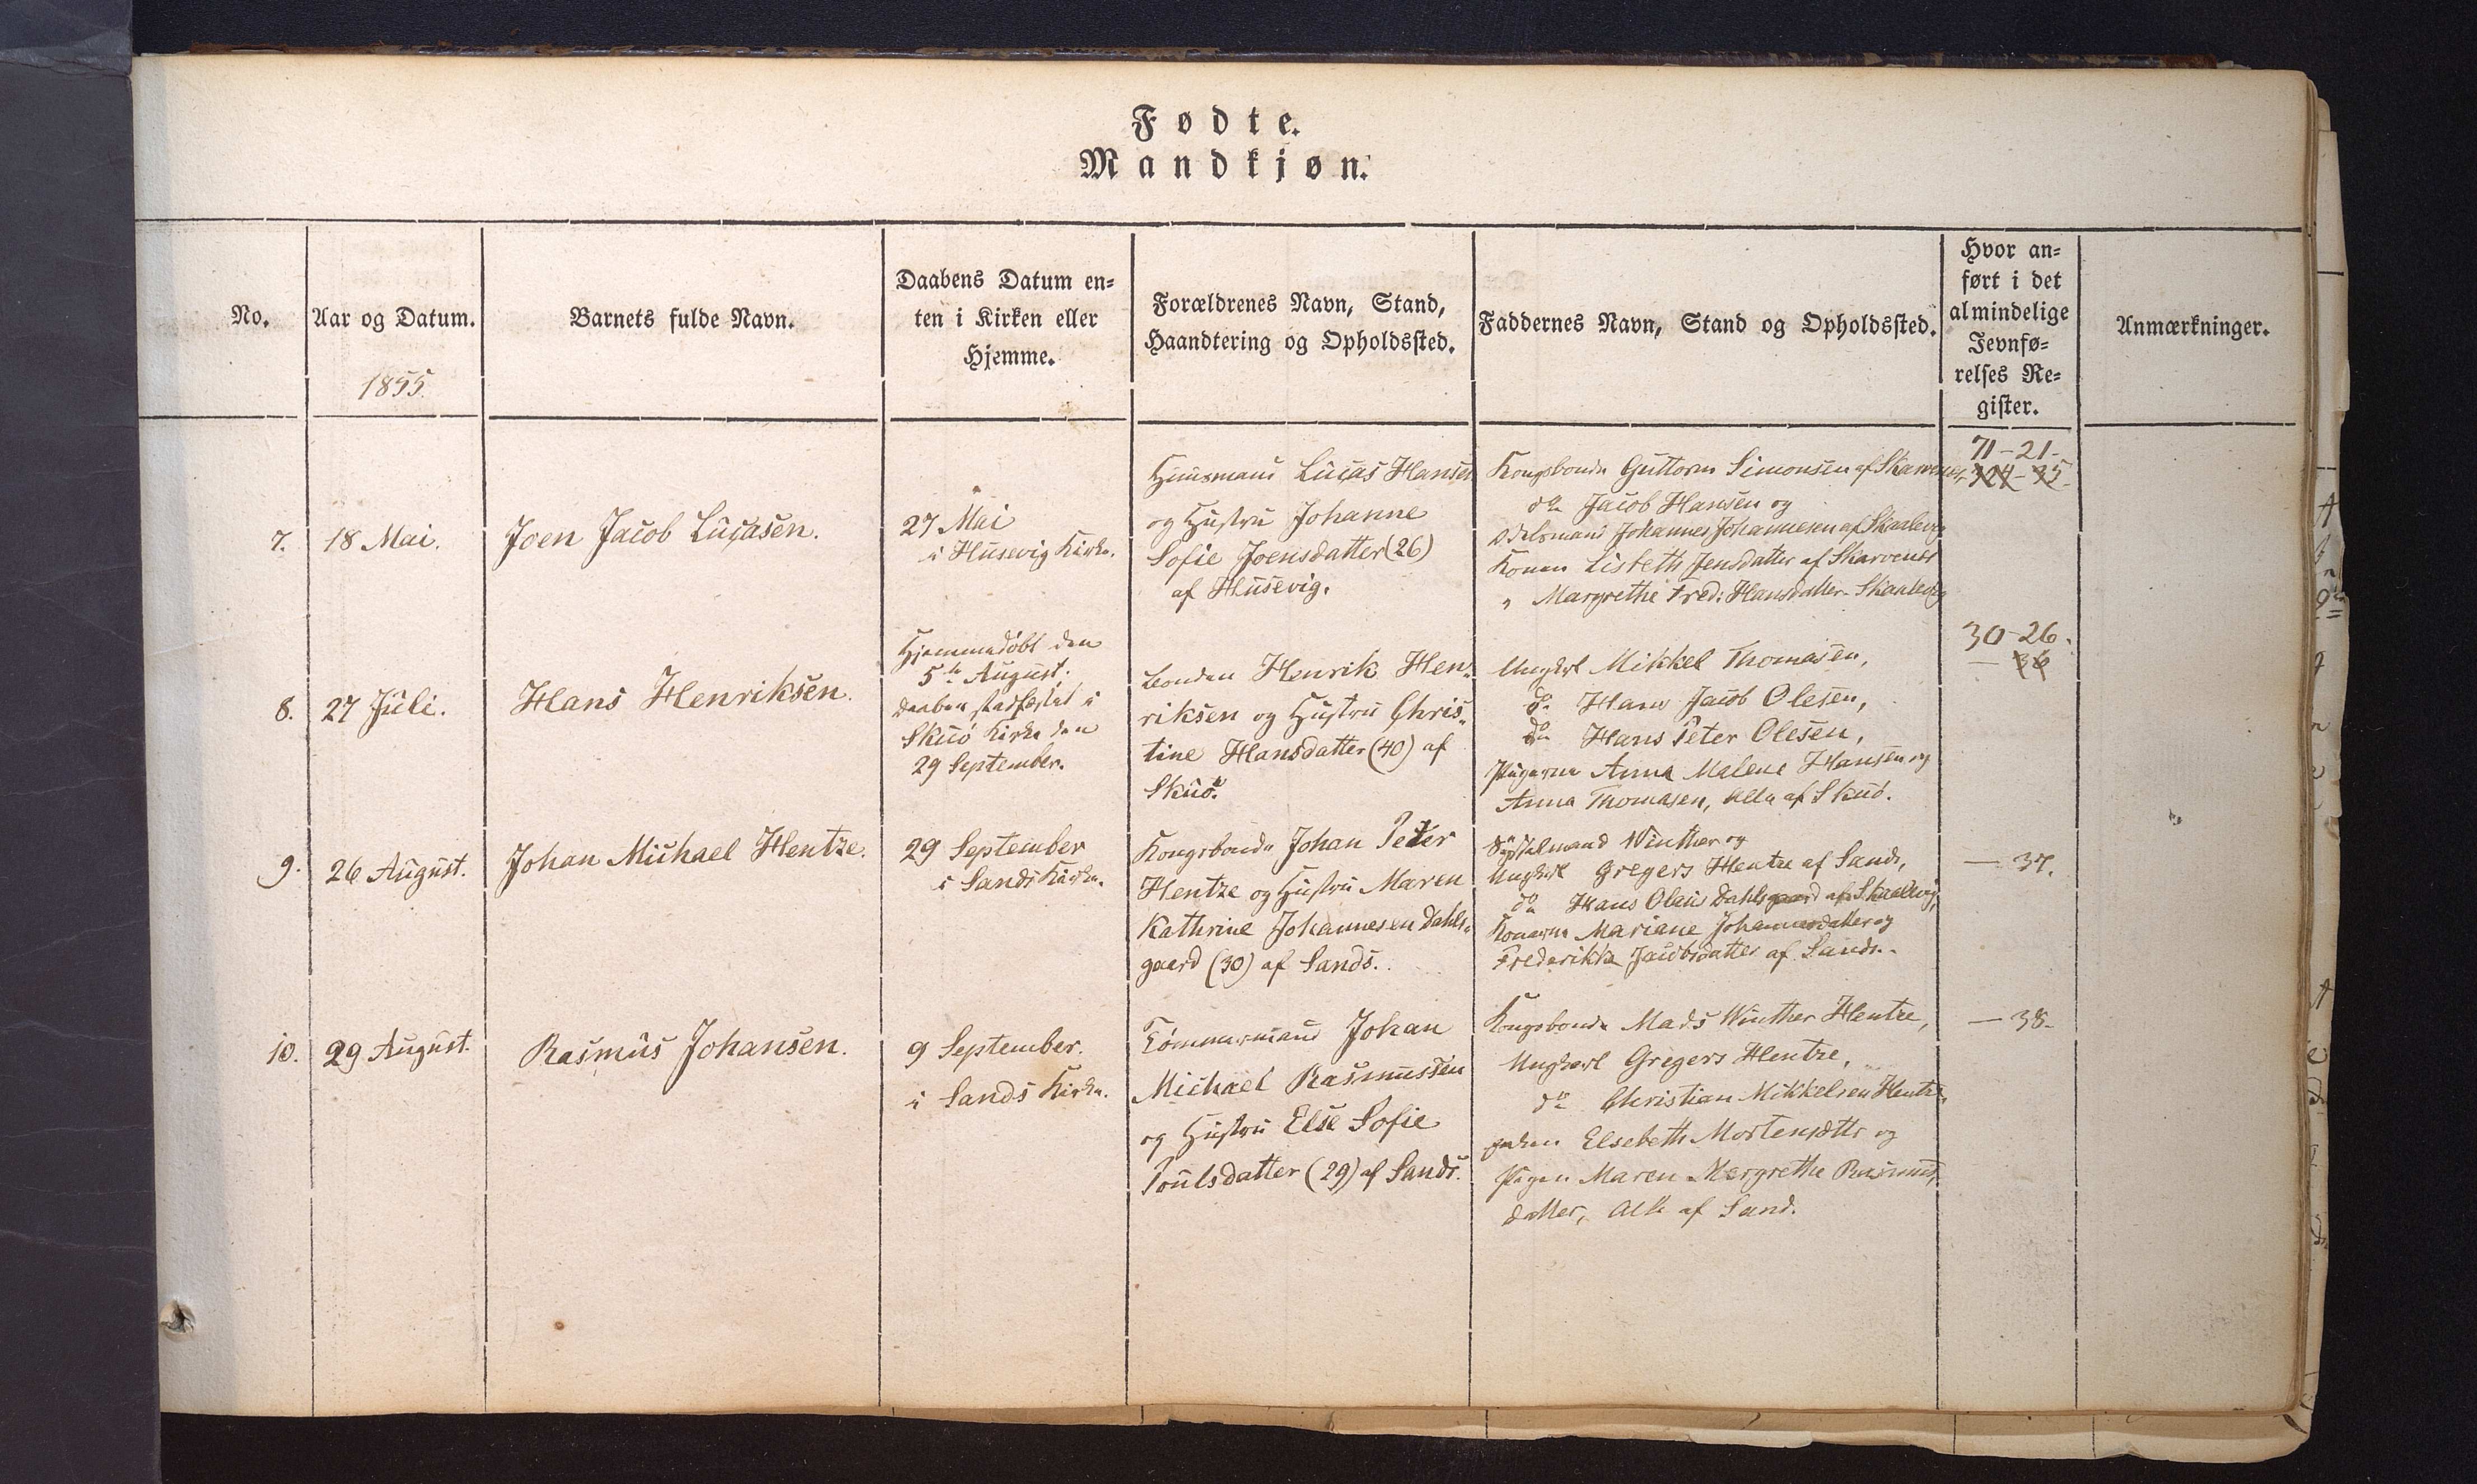 Fødte.
Mandkjøn.
No.
Aar og Datum.
1855.
Barnets fulde Navn.
Daabens Datum en=
ten i Kirken eller
Hjemme.
Forældrenes Navn, Stand,
Haandtering og Opholdssted.
Faddernes Navn, Stand og Opholdssted.
Hvor an=
ført i det
almindelige
Jevnfø=
relses Re=
gister.
Anmærkninger.
7.
18 Mai.
Joen Jacob Lucasen.
27 Mai
i Husevig Kirke.
Huusmand Lucas Hansen
og Hustru Johanne
Sofie Joensdatter (26)
af Husevig.
Kongsbonde Guttorm Simonsen af Skarvenes,
do Jacob Hansen og
Odelsmand Johannes Johannesen af Skaalevig
Konen Lisbeth Jensdatter af Skarvenes
" Margrethe Fred: Hansdatter - Skaalevig
71-21-
8.
27 Juli.
Hans Henriksen.
Hjemmedøbt den
5te August.
Daaben stadfæstet i
Skuø Kirke den
29 September.
Bonden Henrik Hen-
riksen og Hustru Chris-
tine Hansdatter (40) af
Skuø.
Ungkarl Mikkel Thomasen,
do Hans Jacob Olesen,
do Hans Peter Olesen,
Pigerne Anna Malene Hansen og
Anna Thomasen, Alle af Skuø.
30-26.
— 36
9.
26 August.
Johan Michael Hentze.
29 September
i Sands Kirke.
Kongsbonde Johan Peter
Hentze og Hustru Maren
Kathrine Johannesen Dahls-
gaard (30) af Sands.
Sysselmand Winther og
Ungkarl Gregers Hentze af Sands,
do Hans Olaus Dahlsgaard af Skaalevig,
Konerne Mariane Johannesdatter og
Frederikke Jacobsdatter af Sands.
— 37.
10.
29 August.
Rasmus Johansen.
9 September.
i Sands Kirke.
Tømmermand Johan
Michael Rasmussen
og Hustru Else Sofie
Poulsdatter (29) af Sands.
Kongsbonde Mads Winther Hentze,
Ungkarl Gregers Hentze,
do Christian Mikkelsen Hentze,
Elsebeth Mortensdttr og
Pigen Maren Margrethe Rasmus-
datter, Alle af Sand.
— 38.